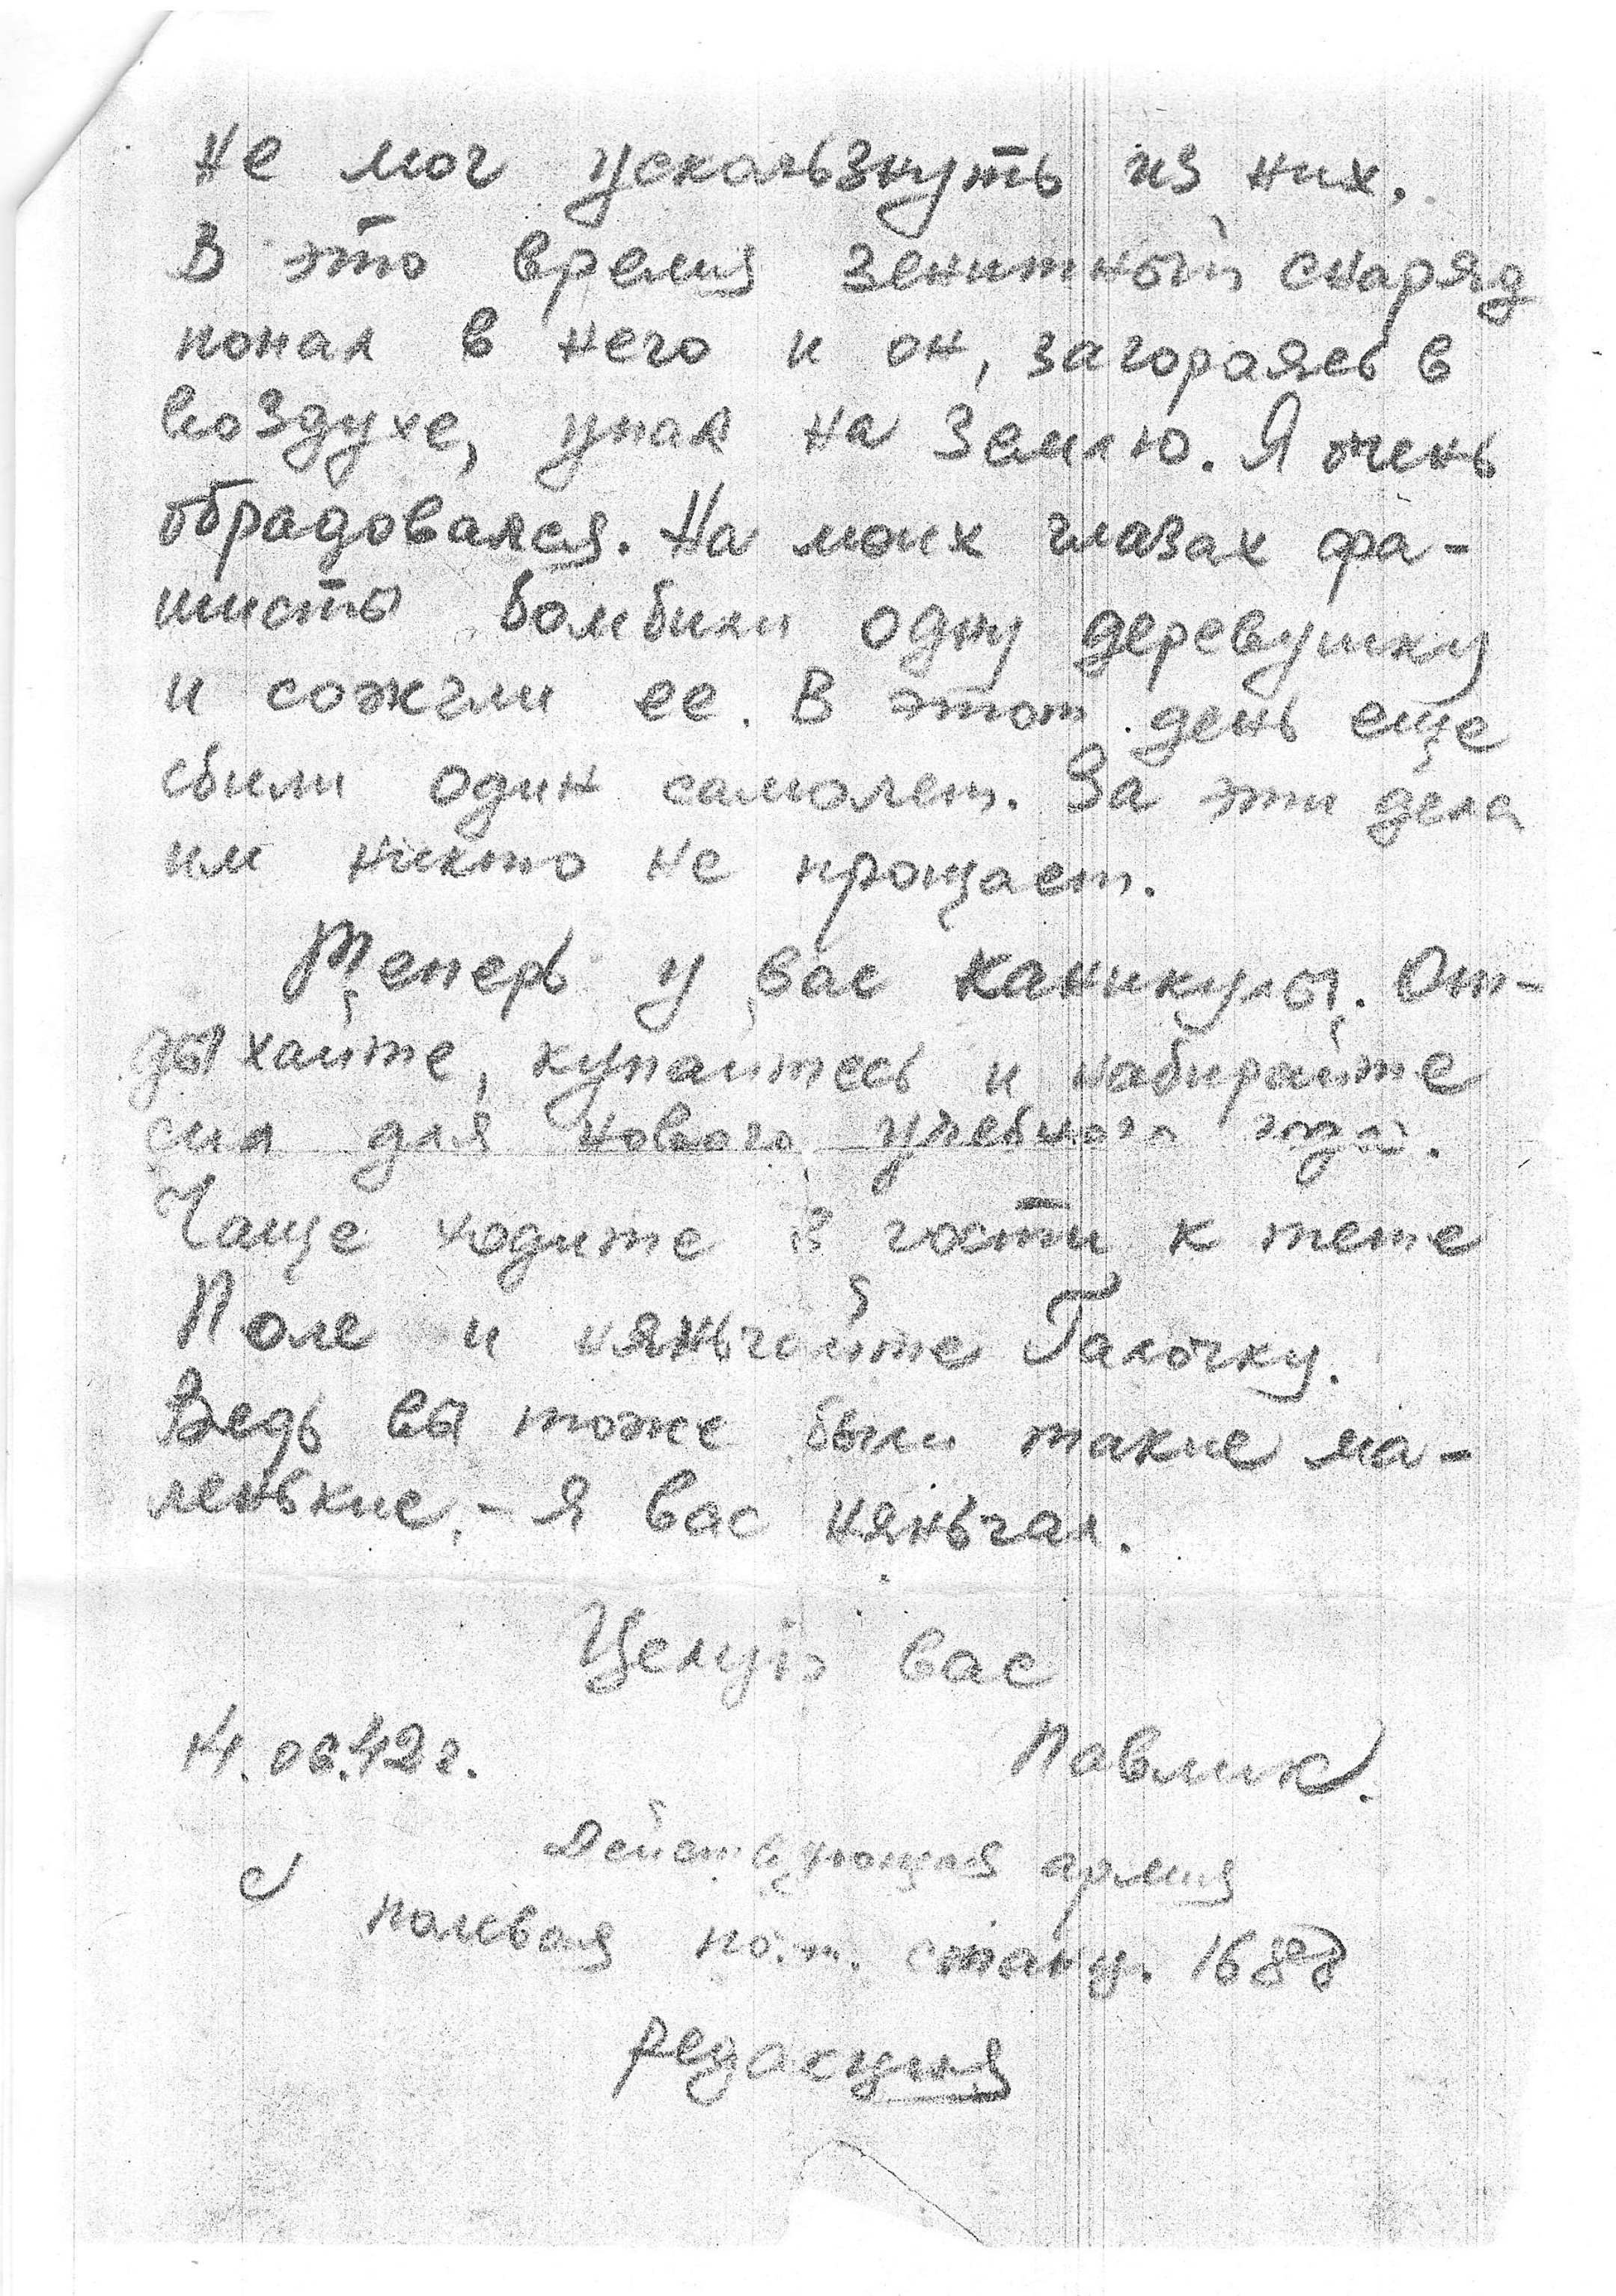 не мог ускользнуть из них.
В это время зенитный снаряд
попал в него и он, загораясь в
воздухе, упал на землю. Я очень
обрадовался. На моих глазах фа-
шисты бомбили одну деревушку
и сожгли ее. В этот день еще
сбили один самолет. За эти дела
им никто не прощает.
Теперь у вас каникулы. От-
дыхайте, купайтесь и набирайте
сил для нового учебного года.
Чаще ходите в гости к тете
Поле и няньчайте Галочку.
Ведь вы тоже были такие ма-
ленькие, - я вас няньчал.
Целую вас
Павлик.
.06.42 г.
Действующая армия
полевая почт. станц. 1688
редакция